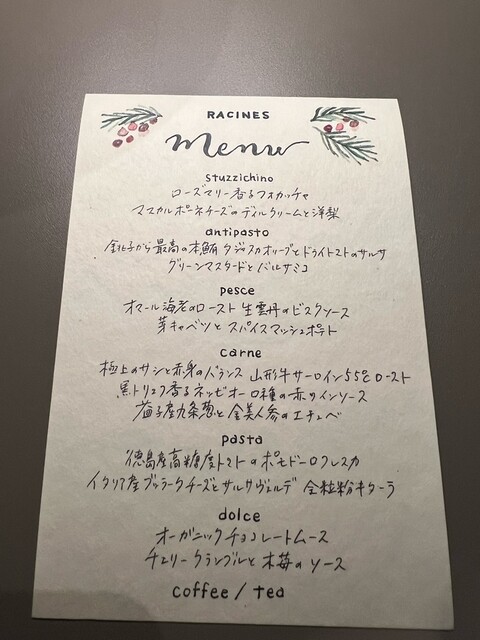 RACINES
menu
stuzzichino
ローズマリー香るフォカッチャ
マスカルポーネチーズのディルクリームと洋梨
antipasto
銚子から最高の本鮪 タジャスカオリーブとドライトマトのサルサ
グリーンマスタードとバルサミコ
pesce
オマール海老のロースト 生雲丹のビスクソース
芽キャベツと スパイスマッシュポテト
carne
極上のサシと赤身のバランス 山形牛サーロイン55℃ロースト
黒トリュフ香るネッビオーロ種の赤ワインソース
益子産九条葱と金美人参のエチュベ
pasta
徳島産高糖度トマトのポモドーロフレスカ
イタリア産ブッラータチーズとサルサヴェルデ 全粒粉キターラ
dolce
オーガニックチョコレートムース
チェリークランブルと木苺のソース
coffee / tea